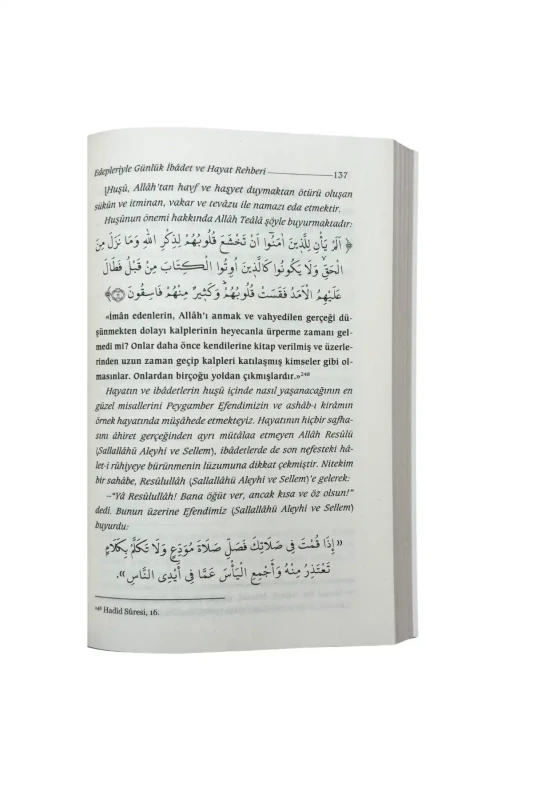 Edepleriyle Günlük İbâdet ve Hayat Rehberi 137
[Huşû, Allâh'tan havf ve haşyet duymaktan ötürü oluşan
sükûn ve itminan, vakar ve tevâzu ile namazı eda etmektir.
Huşûnun önemi hakkında Allâh Teâlâ şöyle buyurmaktadır:
﴿ اَلَمْ يَأْنِ لِلَّذٖينَ اٰمَنُٓوا اَنْ تَخْشَعَ قُلُوبُهُمْ لِذِكْرِ اللّٰهِ وَمَا نَزَلَ مِنَ
الْحَقِّۙ وَلَا يَكُونُوا كَالَّذٖينَ اُوتُوا الْكِتَابَ مِنْ قَبْلُ فَطَالَ
عَلَيْهِمُ الْاَمَدُ فَقَسَتْ قُلُوبُهُمْؕ وَكَثٖيرٌ مِنْهُمْ فَاسِقُونَ ﴾
«İmân edenlerin, Allâh'ı anmak ve vahyedilen gerçeği dü-
şünmekten dolayı kalplerinin heyecanla ürperme zamanı gel-
medi mi? Onlar daha önce kendilerine kitap verilmiş ve üzerle-
rinden uzun zaman geçip kalpleri katılaşmış kimseler gibi ol-
masınlar. Onlardan birçoğu yoldan çıkmışlardır.»²⁴⁸
Hayatın ve ibâdetlerin huşû içinde nasıl yaşanacağının en
güzel misallerini Peygamber Efendimizin ve ashâb-ı kirâmın
örnek hayatında müşâhede etmekteyiz. Hayatının hiçbir safha-
sını âhiret gerçeğinden ayrı mütâlaa etmeyen Allâh Resûlü
(Sallallâhü Aleyhi ve Sellem), ibâdetlerde de son nefesteki hâ-
let-i rûhiyeye bürünmenin lüzumuna dikkat çekmiştir. Nitekim
bir sahâbe, Resûlullâh (Sallallâhü Aleyhi ve Sellem)'e gelerek:
–"Yâ Resûlullah! Bana öğüt ver, ancak kısa ve öz olsun!"
dedi. Bunun üzerine Efendimiz (Sallallâhü Aleyhi ve Sellem)
buyurdu:
« إِذَا قُمْتَ فِى صَلَاتِكَ فَصَلِّ صَلَاةَ مُوَدِّعٍ وَلَا تَكَلَّمْ بِكَلَامٍ
تَعْتَذِرُ مِنْهُ وَأَجْمِعِ الْيَأْسَ عَمَّا فِى أَيْدِى النَّاسِ ».
²⁴⁸ Hadid Sûresi, 16.